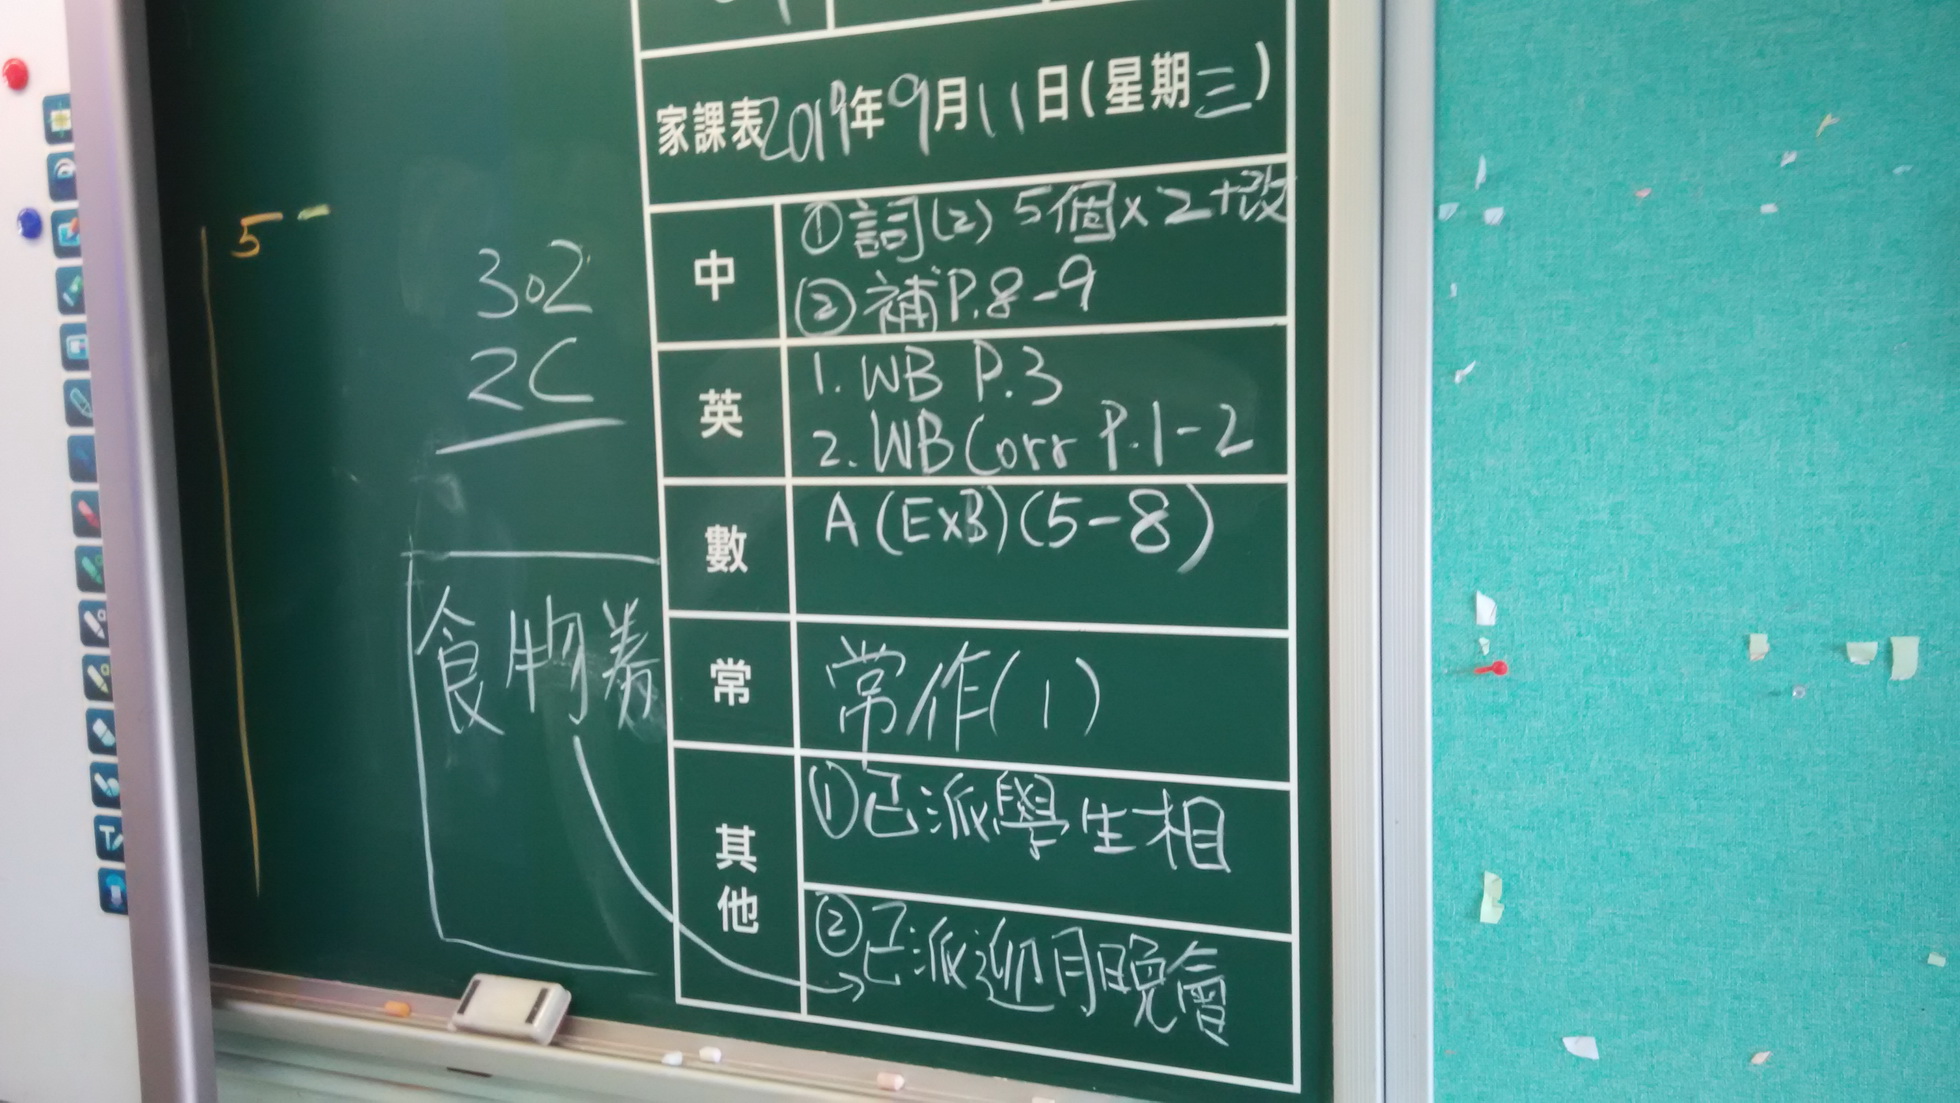 家課表2019年9月11日(星期三)
中
①詞(2) 5個x2+改
②補P.8-9
英
1. WB P.3
2. WB Corr P.1-2
數
A (ExB)(5-8)
常
常作(1)
其他
①已派學生相
②已派迎月晚會
5
302
2C
食物券